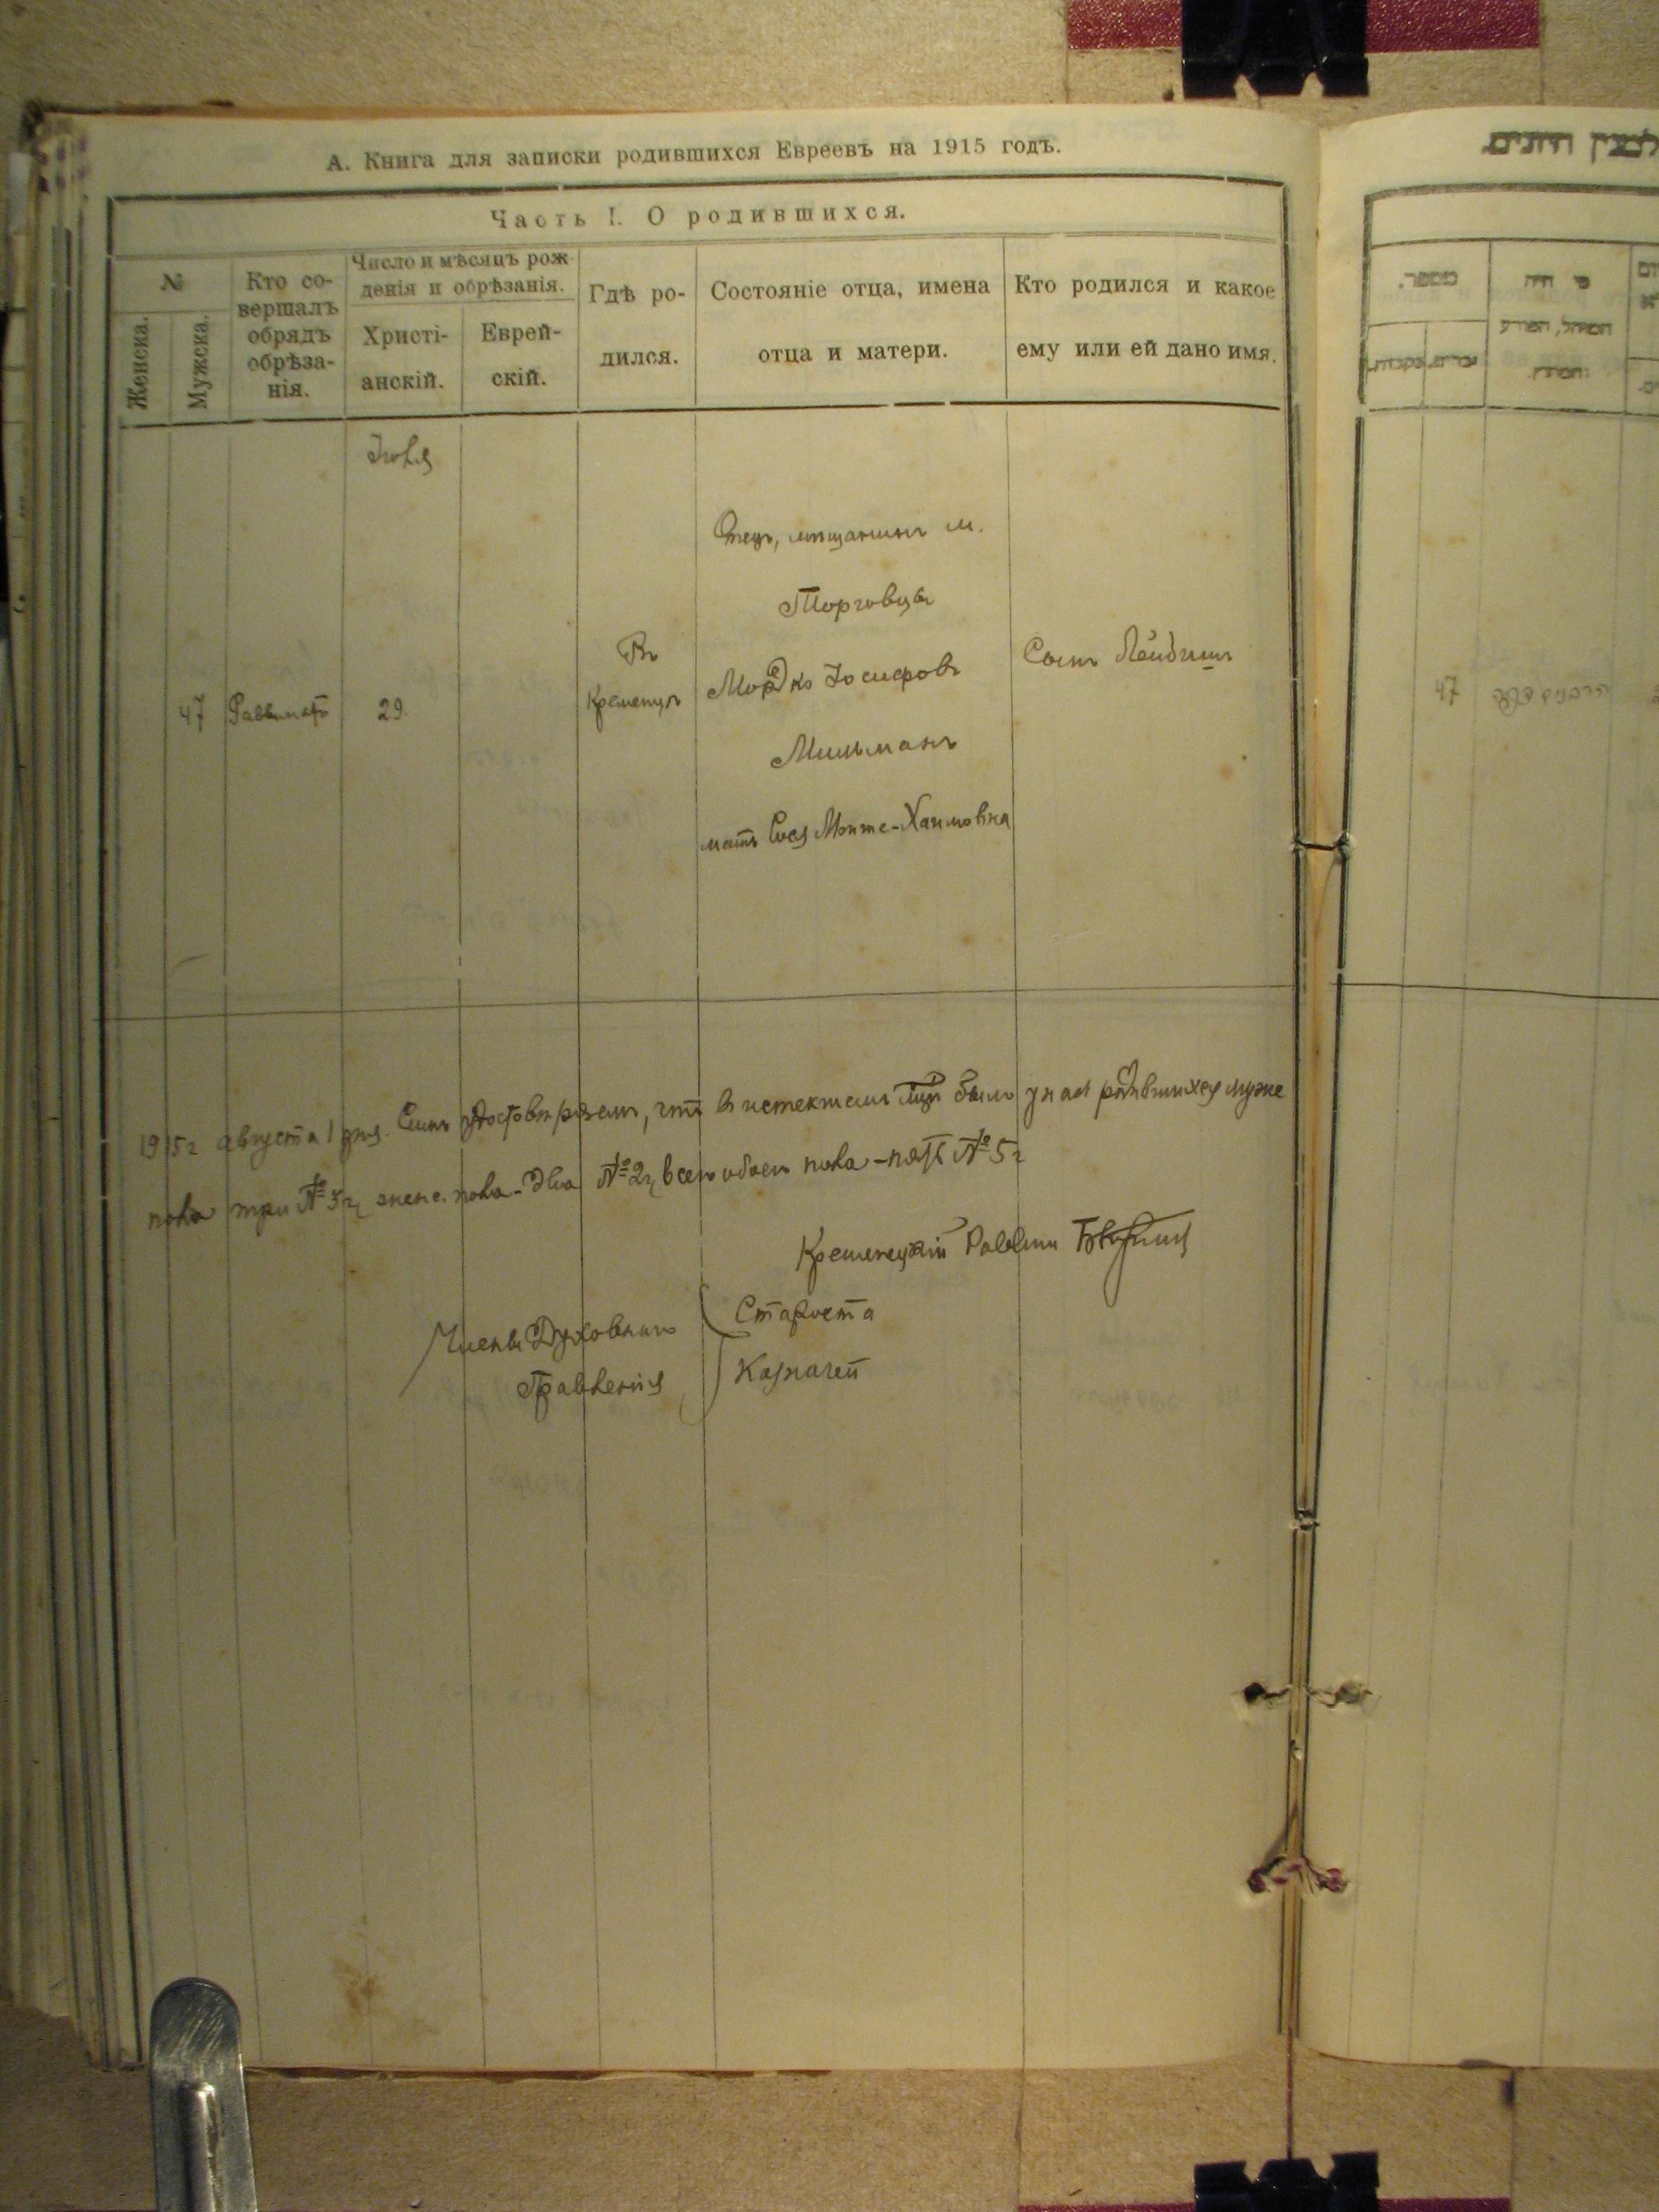 А. Книга для записки родившихся Евреевъ на 1915 годъ.
Часть I. О родившихся.
№
Женска.
Мужска.
Кто со-
вершалъ
обрядъ
обрѣза-
нія.
Число и мѣсяцъ рож-
денія и обрѣзанія.
Христі-
анскій.
Еврей-
скій.
Гдѣ ро-
дился.
Состояніе отца, имена
отца и матери.
Кто родился и какое
ему или ей дано имя.
Іюля
47
Раввинатъ
29.
Въ
Кременцѣ
Отецъ, мѣщанинъ м.
Торговцы
Мордко Іосифовъ
Мильманъ
мать Сося Монте-Хаимовна
Сынъ Лейбишъ
1915 г августа 1 дня. Симъ удостовѣряемъ, что въ истекшемъ было у насъ родившихся муже
пола три № 3й, женс. пола - два № 2й, всего обоего пола - пять № 5й
Кременецкій Раввинъ
Члены Духовнаго
Правленія
Староста
Казначей
מספר.
מי היה
המוהל, הפורע
והמוצץ.
זכרים.
נקבות.
47